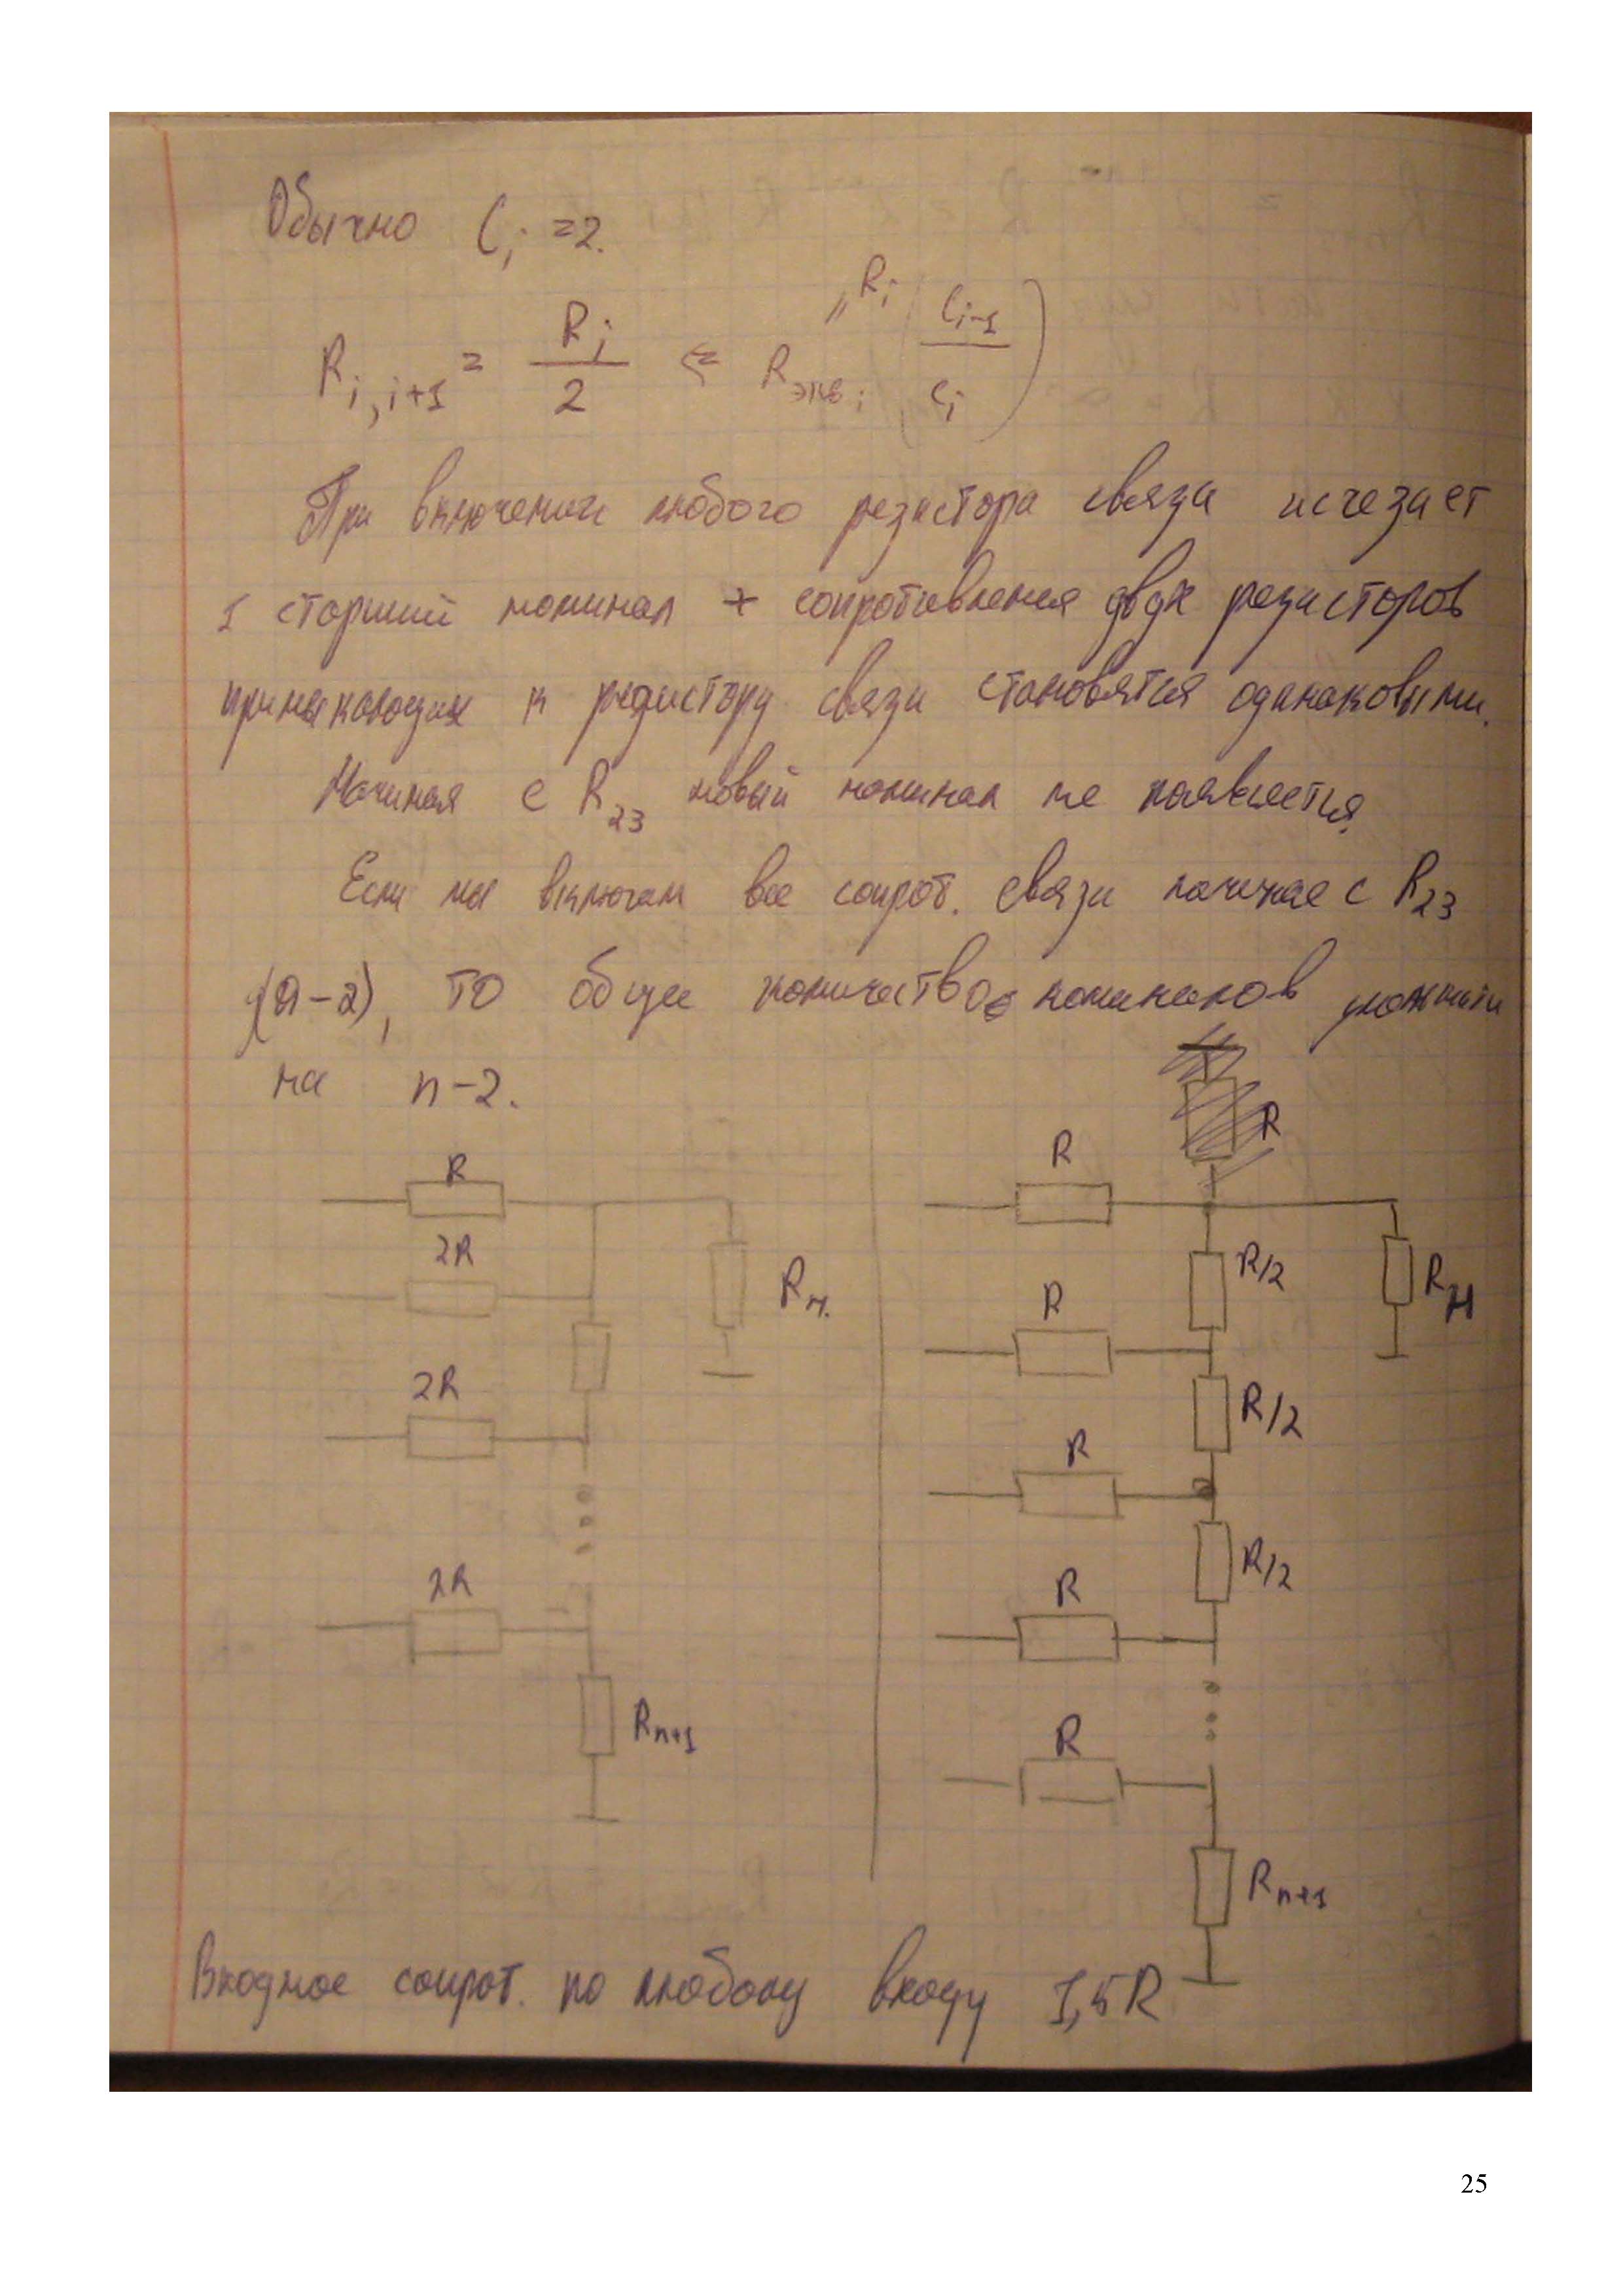 Обычно Ci =2.
Ri,i+1 = Ri / 2 <= Rэкв i "Ri ( Ci-1 / Ci )
При включении любого резистора связи исчезает
1 старший номинал + сопротивления двух резисторов
примыкающих к резистору связи становятся одинаковыми.
Начиная с R23 новый номинал не появляется.
Если мы включам все сопрот. связи начиная с R23
(n-2), то общее количество номиналов
на n-2.
R
R
R
2R
R/2
Rн.
R
Rн
2R
R/2
R
R/2
2R
R
R
Rn+1
Rn+1
Входное сопрот. по любому входу 1,5R
25